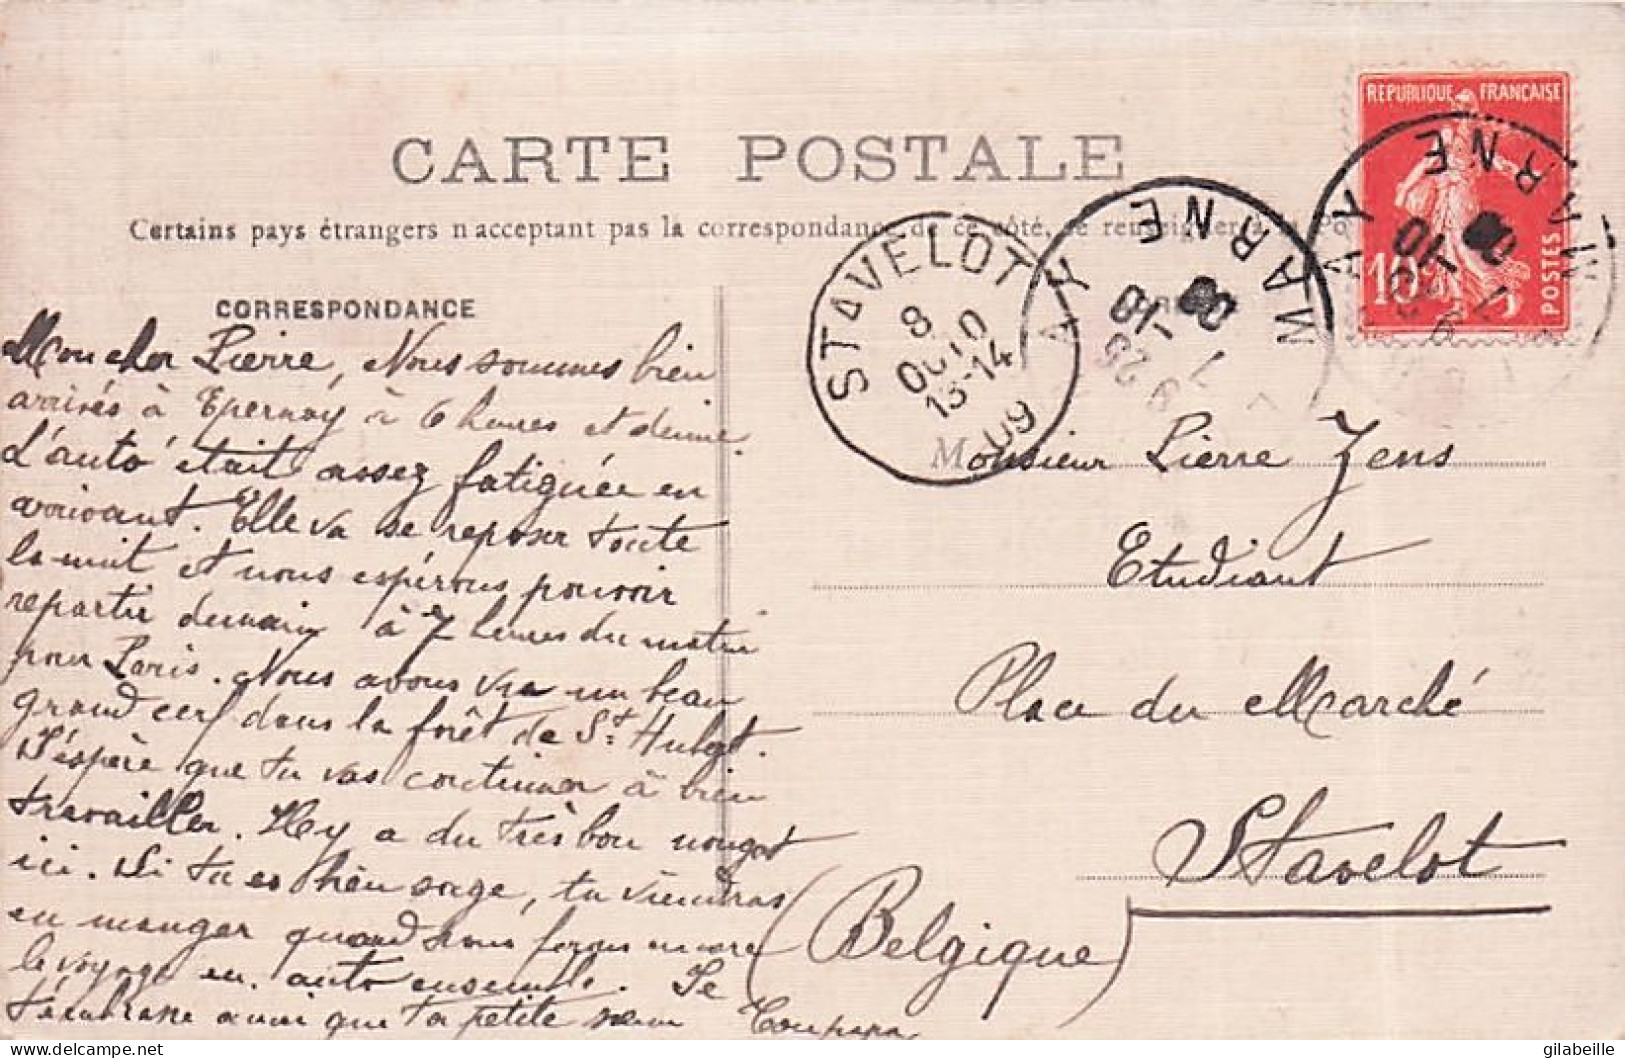 CARTE POSTALE
Certains pays étrangers n'acceptant pas la correspondance de ce côté, se renseigner à la Po
CORRESPONDANCE
REPUBLIQUE FRANÇAISE
10c
POSTES
AY MARNE
7 - 10
09
AY MARNE
7 - 10
09
STAVELOT
8
OCTO
13-14
09
Mon cher Pierre, Nous sommes bien
arrivés à Epernay à 6 heures et demie.
L'auto était assez fatiguée en
arrivant. Elle va se reposer toute
la nuit et nous espérons pouvoir
repartir demain à 7 heures du matin
pour Paris. Nous avons vu un beau
grand cerf dans la forêt de St. Hubert.
J'espère que tu vas continuer à bien
travailler. Il y a du très bon nougat
ici. Si tu es bien sage, tu viendras
en manger quand nous ferons encore
le voyage en auto ensemble. Je
t'embrasse ainsi que ta petite sœur Ton papa
Monsieur Pierre Jens
Etudiant
Place du Marché
Stavelot
(Belgique)
gilabeille